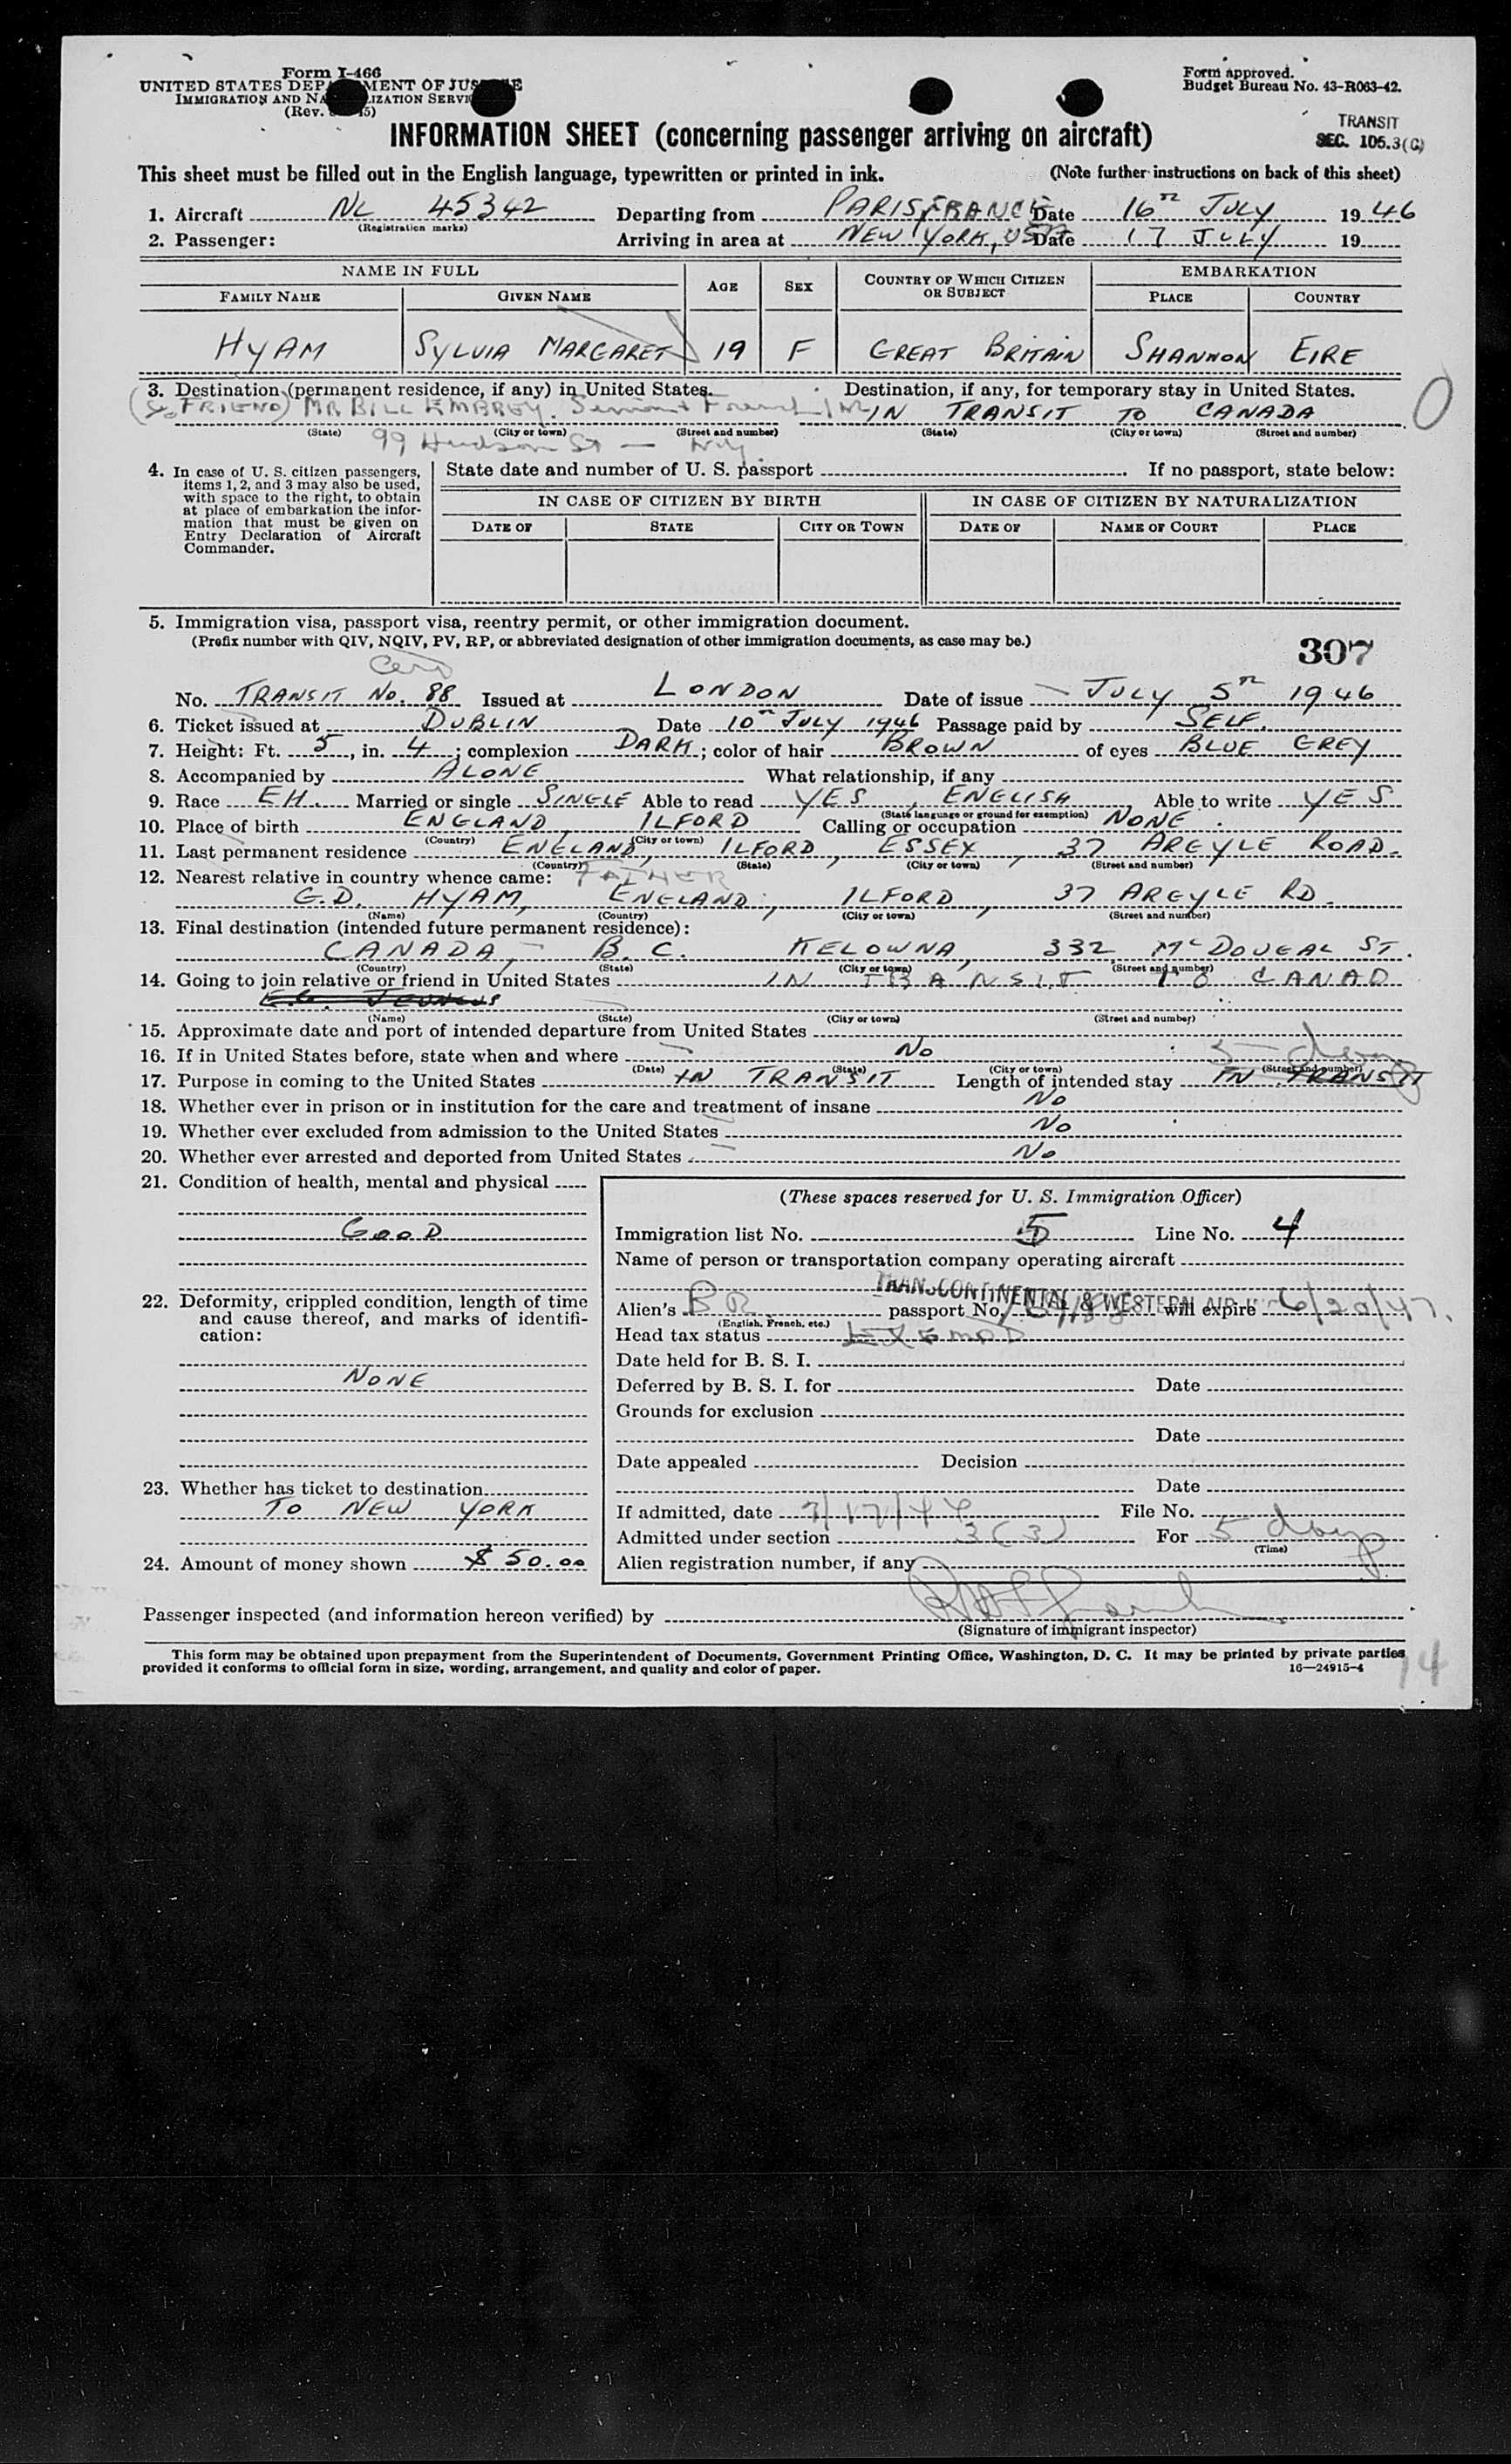 Form I-466
UNITED STATES DEPARTMENT OF JUSTICE
IMMIGRATION AND NATURALIZATION SERVICE
(Rev.
Form approved.
Budget Bureau No. 43-R063-42.
TRANSIT
SEC. 105.3(C)
INFORMATION SHEET (concerning passenger arriving on aircraft)
This sheet must be filled out in the English language, typewritten or printed in ink. (Note further instructions on back of this sheet)
1. Aircraft NL 45342 Departing from PARIS, FRANCE Date 16TH JULY 1946
(Registration marks)
2. Passenger: Arriving in area at NEW YORK, USA Date 17 JULY 19
NAME IN FULL AGE SEX COUNTRY OF WHICH CITIZEN OR SUBJECT EMBARKATION
FAMILY NAME GIVEN NAME PLACE COUNTRY
HYAM SYLVIA MARGARET 19 F GREAT BRITAIN SHANNON EIRE
3. Destination (permanent residence, if any) in United States. Destination, if any, for temporary stay in United States.
FRIEND) MR BILL EMBREY. IN TRANSIT TO CANADA 0
(State) (City or town) (Street and number) (State) (City or town) (Street and number)
99 Hudson St — NY
4. In case of U. S. citizen passengers, items 1, 2, and 3 may also be used, with space to the right, to obtain at place of embarkation the information that must be given on Entry Declaration of Aircraft Commander.
State date and number of U. S. passport If no passport, state below:
IN CASE OF CITIZEN BY BIRTH IN CASE OF CITIZEN BY NATURALIZATION
DATE OF STATE CITY OR TOWN DATE OF NAME OF COURT PLACE
5. Immigration visa, passport visa, reentry permit, or other immigration document.
(Prefix number with QIV, NQIV, PV, RP, or abbreviated designation of other immigration documents, as case may be.)
307
No. TRANSIT No. 88 Issued at LONDON Date of issue JULY 5TH 1946
6. Ticket issued at DUBLIN Date 10TH JULY 1946 Passage paid by SELF.
7. Height: Ft. 5, in. 4; complexion DARK; color of hair BROWN of eyes BLUE GREY
8. Accompanied by ALONE What relationship, if any
9. Race EH. Married or single SINGLE Able to read YES, ENGLISH, Able to write YES
(State language or ground for exemption)
10. Place of birth ENGLAND, ILFORD Calling or occupation NONE.
(Country) (City or town)
11. Last permanent residence ENGLAND, ILFORD, ESSEX, 37 ARGYLE ROAD.
(Country) (State) (City or town) (Street and number)
12. Nearest relative in country whence came: FATHER
G.D. HYAM, ENGLAND, ILFORD, 37 ARGYLE RD.
(Name) (Country) (City or town) (Street and number)
13. Final destination (intended future permanent residence):
CANADA, B.C. KELOWNA, 332 McDOUGAL ST.
(Country) (State) (City or town) (Street and number)
14. Going to join relative or friend in United States IN TRANSIT TO CANAD
(Name) (State) (City or town) (Street and number)
15. Approximate date and port of intended departure from United States
16. If in United States before, state when and where No
(Date) (State) (City or town) (Street and number)
5 days
17. Purpose in coming to the United States IN TRANSIT Length of intended stay IN TRANSIT
18. Whether ever in prison or in institution for the care and treatment of insane No
19. Whether ever excluded from admission to the United States No
20. Whether ever arrested and deported from United States No
21. Condition of health, mental and physical
GOOD
22. Deformity, crippled condition, length of time and cause thereof, and marks of identification:
NONE
23. Whether has ticket to destination
TO NEW YORK
24. Amount of money shown $ 50.00
(These spaces reserved for U. S. Immigration Officer)
Immigration list No. 5 Line No. 4
Name of person or transportation company operating aircraft
TRANSCONTINENTAL & WESTERN AIR
Alien's BR passport No. will expire 6/20/47.
(English, French, etc.)
Head tax status
Date held for B. S. I.
Deferred by B. S. I. for Date
Grounds for exclusion
Date
Date appealed Decision
Date
If admitted, date 7/17/46 File No.
Admitted under section 3(3) For 5 days
(Time)
Alien registration number, if any
Passenger inspected (and information hereon verified) by
(Signature of immigrant inspector)
This form may be obtained upon prepayment from the Superintendent of Documents, Government Printing Office, Washington, D. C. It may be printed by private parties
provided it conforms to official form in size, wording, arrangement, and quality and color of paper. 16—24915-4
14